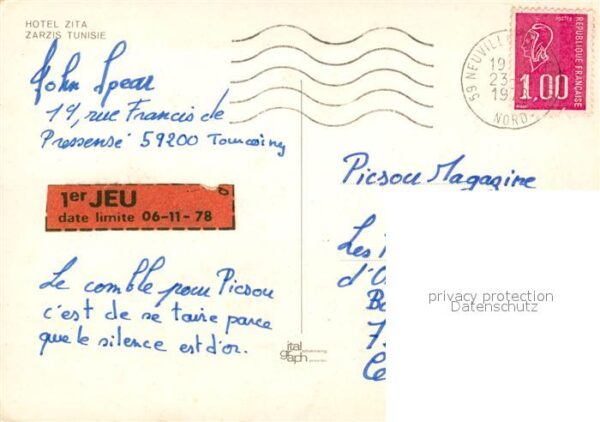 HOTEL ZITA
ZARZIS TUNISIE
John Spear
19, rue Francis de
Pressensé 59200 Tourcoing
1er JEU
date limite 06-11-78
Le comble pour Picsou
c'est de se taire parce
que le silence est d'or.
ital
graph
59 NEUVILLE
19
23-
19
NORD
REPUBLIQUE FRANÇAISE
1,00
Picsou Magazine
Les
d'O
B
7
Ce
privacy protection
Datenschutz